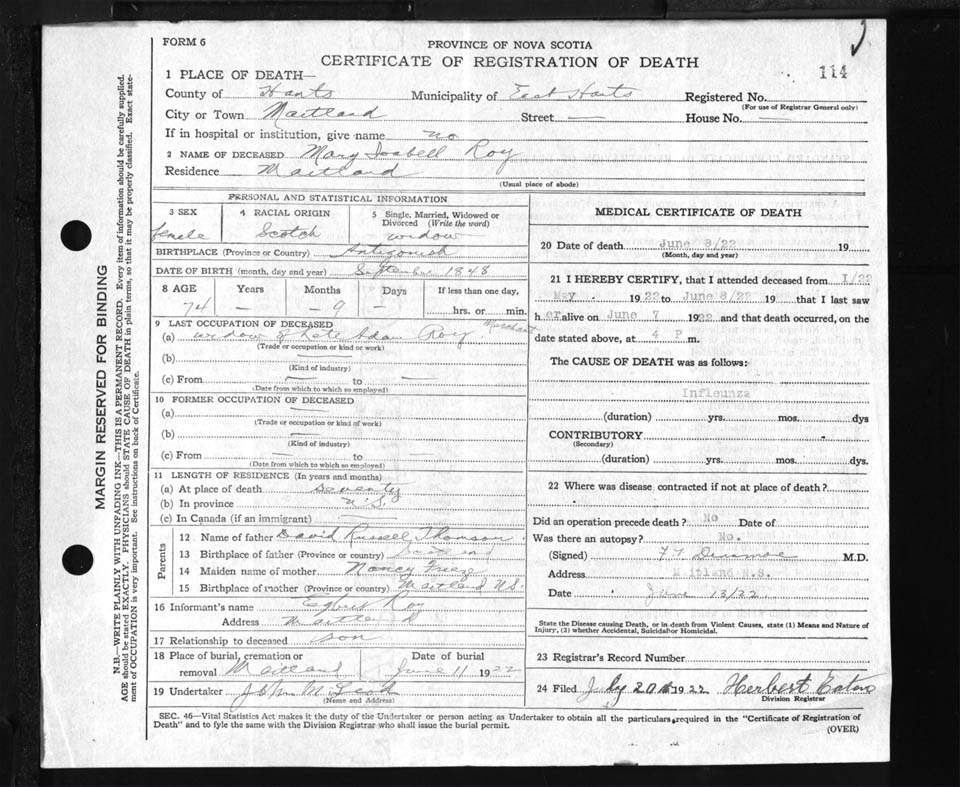 FORM 6
PROVINCE OF NOVA SCOTIA
CERTIFICATE OF REGISTRATION OF DEATH
114
1 PLACE OF DEATH—
County of Hants Municipality of East Hants Registered No.
(For use of Registrar General only)
City or Town Maitland Street — House No. —
If in hospital or institution, give name no
2 NAME OF DECEASED Mary Isabell Roy
Residence Maitland
(Usual place of abode)
MARGIN RESERVED FOR BINDING
N.B.—WRITE PLAINLY WITH UNFADING INK—THIS IS A PERMANENT RECORD. Every item of information should be carefully supplied.
AGE should be stated EXACTLY. PHYSICIANS should STATE CAUSE OF DEATH in plain terms, so that it may be properly classified. Exact state-
ment of OCCUPATION is very important. See instructions on back of Certificate.
PERSONAL AND STATISTICAL INFORMATION
3 SEX 4 RACIAL ORIGIN 5 Single, Married, Widowed or
Divorced (Write the word)
female Scotch widow
BIRTHPLACE (Province or Country) Antigonish
DATE OF BIRTH (month, day and year) September 1848
8 AGE Years Months Days If less than one day,
74 — 9 — hrs. or min.
9 LAST OCCUPATION OF DECEASED
(a) widow of late Adam Roy Merchant
(Trade or occupation or kind or work)
(b) —
(Kind of industry)
(c) From — to —
(Date from which to which so employed)
10 FORMER OCCUPATION OF DECEASED
(a) —
(Trade or occupation or kind of work)
(b) —
(Kind of industry)
(c) From — to —
(Date from which to which so employed)
11 LENGTH OF RESIDENCE (In years and months)
(a) At place of death seventy
(b) In province N.S.
(c) In Canada (if an immigrant) —
Parents
12 Name of father David Russell Thomson
13 Birthplace of father (Province or country) Scotland
14 Maiden name of mother Nancy Freeze
15 Birthplace of mother (Province or country) Maitland N.S.
16 Informant's name Egbert Roy
Address Maitland
17 Relationship to deceased son
18 Place of burial, cremation or Date of burial
removal Maitland June 11 1922
19 Undertaker John M
(Name and Address)
MEDICAL CERTIFICATE OF DEATH
20 Date of death June 8/22 19
(Month, day and year)
21 I HEREBY CERTIFY, that I attended deceased from 1/22
May 1922 to June 8/22 19 that I last saw
h er alive on June 7 1922 and that death occurred, on the
date stated above, at 4 P m.
The CAUSE OF DEATH was as follows:
Infleunza
(duration) yrs. mos. dys
CONTRIBUTORY
(Secondary)
(duration) yrs. mos. dys.
22 Where was disease contracted if not at place of death?
Did an operation precede death? No Date of
Was there an autopsy? No.
(Signed) Dinsmoe M.D.
Address Maitland N.S.
Date June 13/22
State the Disease causing Death, or in death from Violent Causes, state (1) Means and Nature of
Injury, (2) whether Accidental, Suicidal or Homicidal.
23 Registrar's Record Number
24 Filed July 20 1922 Herbert Eaton
Division Registrar
SEC. 46—Vital Statistics Act makes it the duty of the Undertaker or person acting as Undertaker to obtain all the particulars required in the "Certificate of Registration of
Death" and to fyle the same with the Division Registrar who shall issue the burial permit.
(OVER)